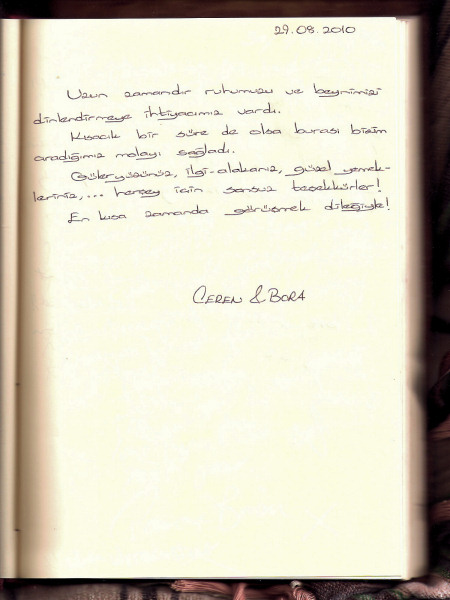 29.08.2010
Uzun zamandır ruhumuzu ve beynimizi
dinlendirmeye ihtiyacımız vardı.
Kısacık bir süre de olsa burası bizim
aradığımız molayı sağladı.
Güleryüzünüz, ilgi-alakanız, güzel yemek-
leriniz,... herşey için sonsuz teşekkürler!
En kısa zamanda görüşmek dileğiyle!
CEREN & BORA